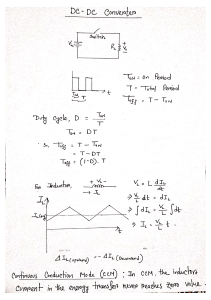 DC-DC Converter
switch
V_s
R_L
V_o
T_ON = on Period
T = Total Period
T_off = T - T_ON
T_ON
T
Duty cycle, D = T_ON / T
T_ON = DT
So, T_off = T - T_ON
= T - DT
T_off = (1-D).T
For Inductor,
+ V_L -
→ I_L
V_L = L dI_L / dt
⇒ V_L / L dt = dI_L
⇒ ∫dI_L = V_L / L ∫dt
⇒ I_L = V_L / L . t
I_L
t
ΔI_L (upward) = -ΔI_L (downward)
Continuous Conduction Mode (CCM) : In CCM, the inductors
current in the energy transfer never reaches zero value.